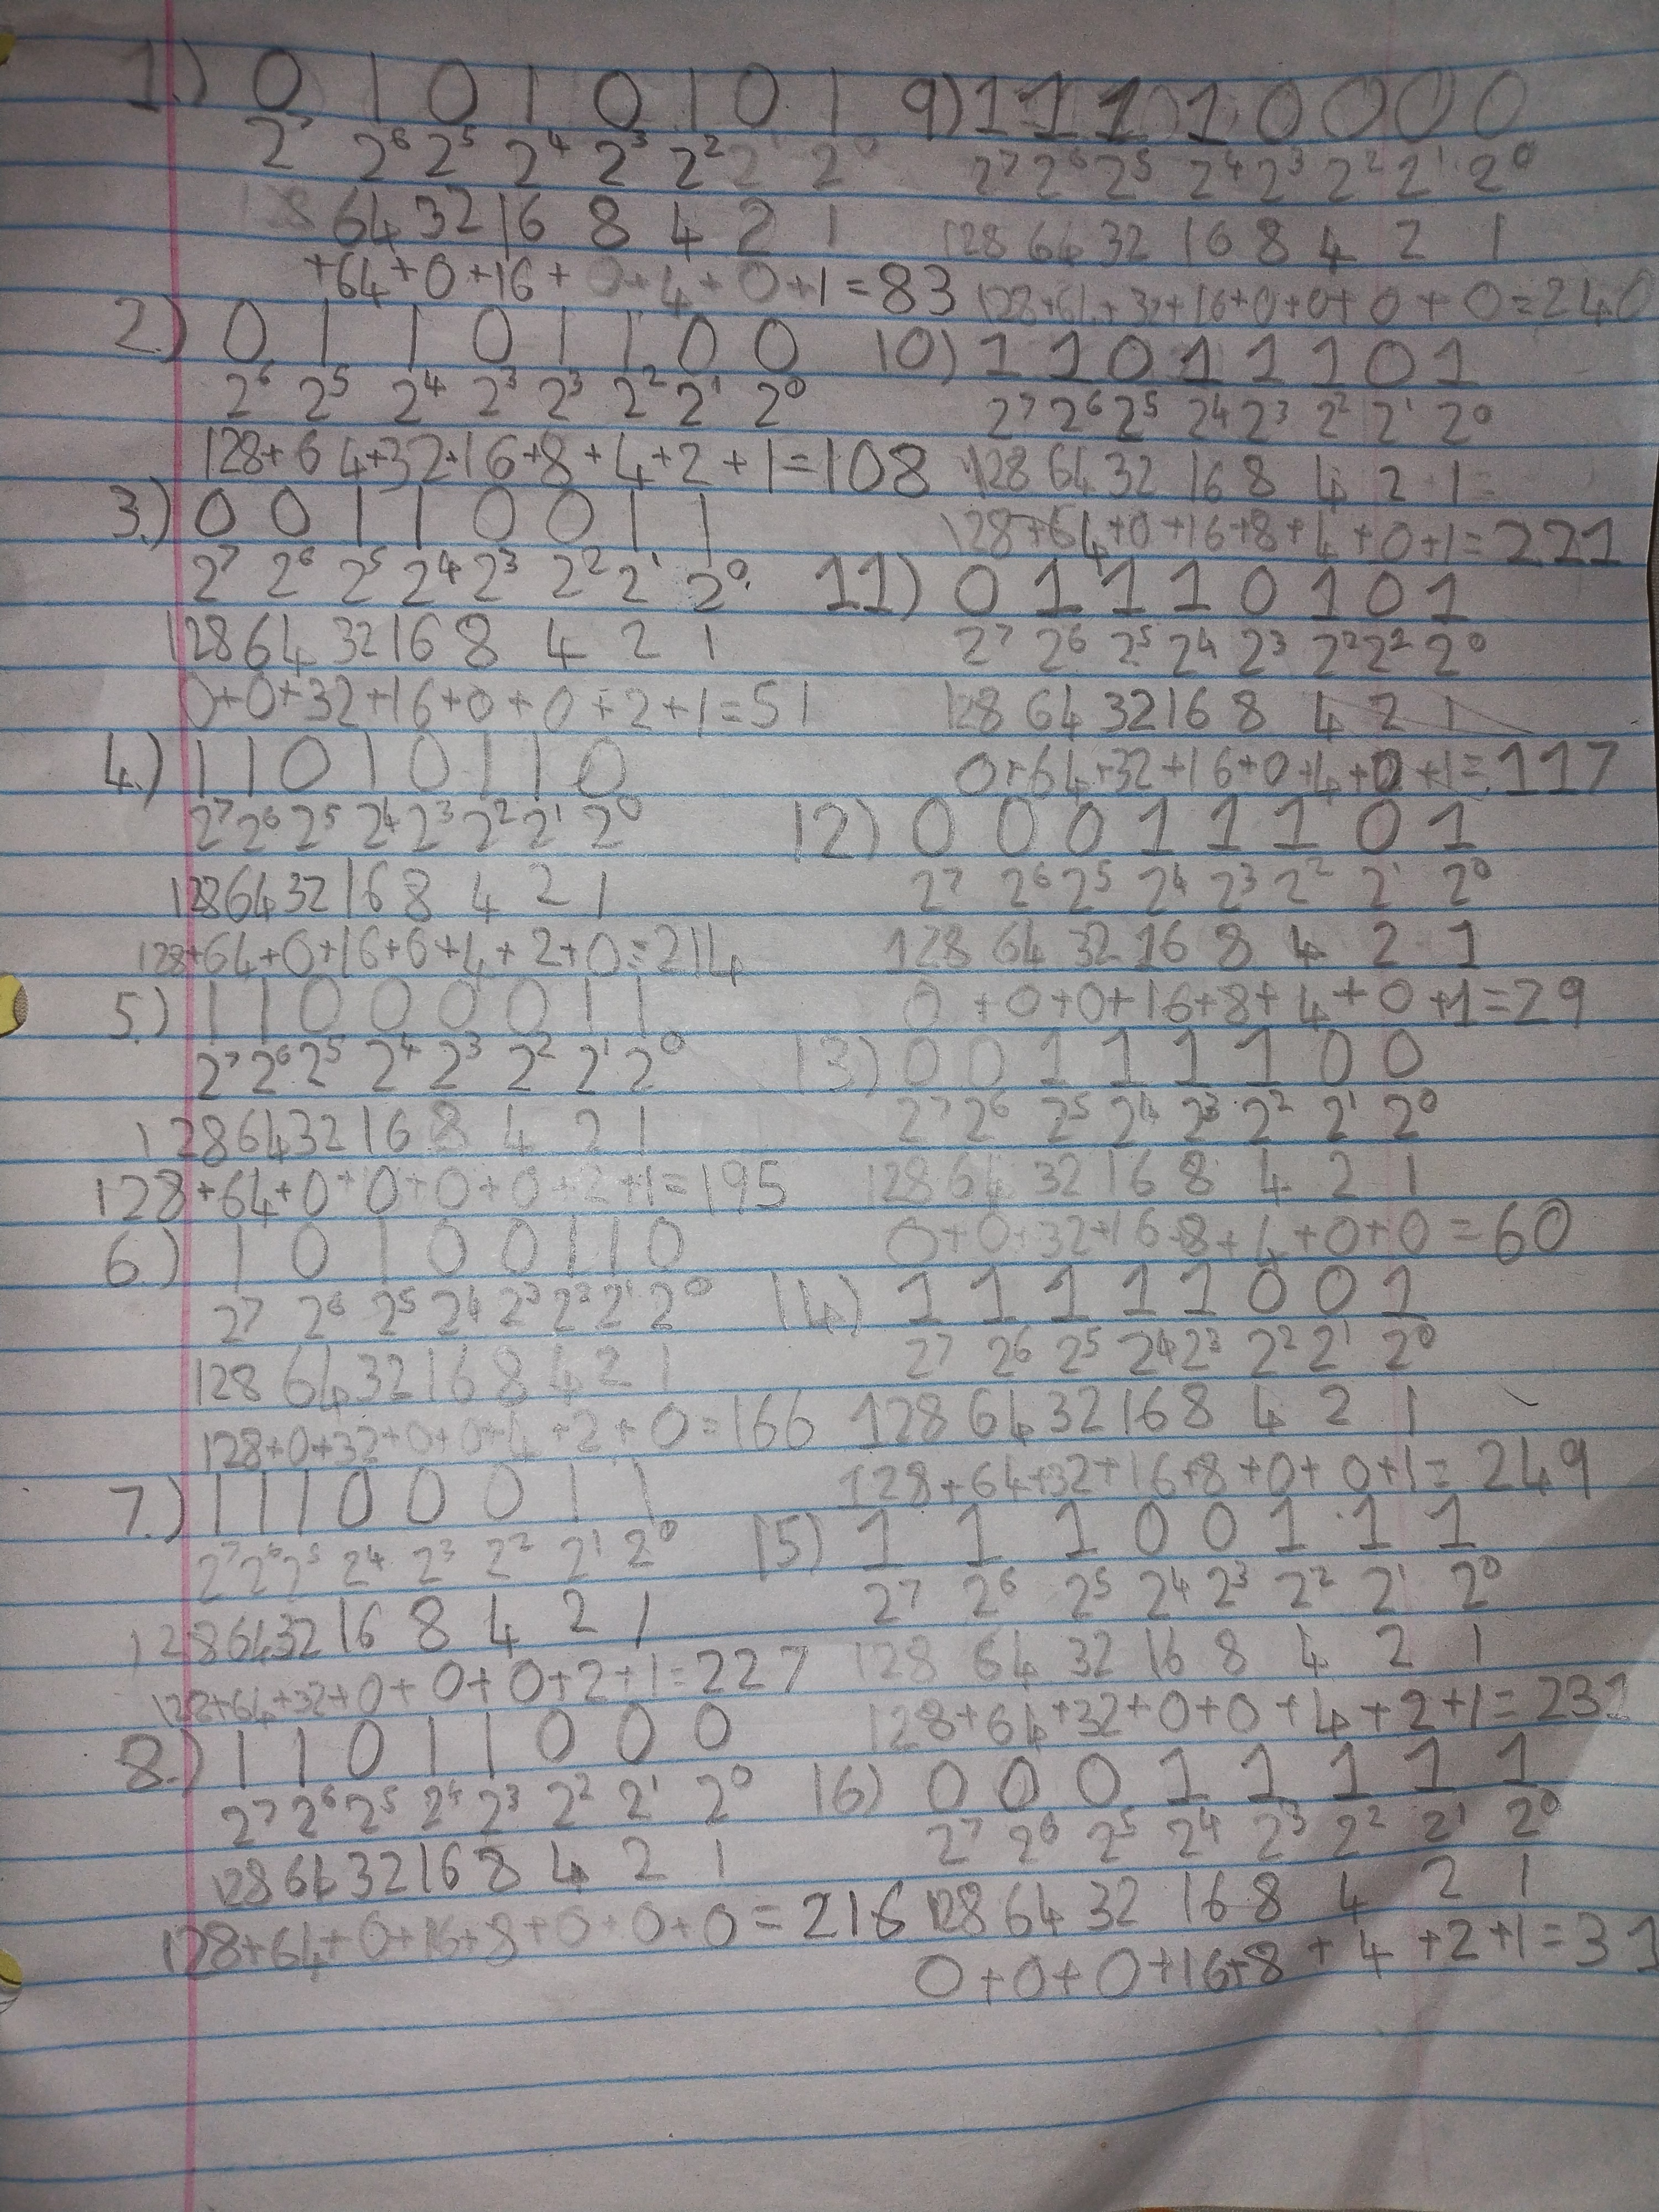 1.) 0 1 0 1 0 1 0 1
2⁷ 2⁶ 2⁵ 2⁴ 2³ 2² 2¹ 2⁰
128 64 32 16 8 4 2 1
+64+0+16+0+4+0+1=83
2.) 0 1 1 0 1 1 0 0
2⁶ 2⁵ 2⁴ 2³ 2³ 2² 2¹ 2⁰
128+64+32+16+8+4+2+1=108
3.) 0 0 1 1 0 0 1 1
2⁷ 2⁶ 2⁵ 2⁴ 2³ 2² 2¹ 2⁰
128 64 32 16 8 4 2 1
0+0+32+16+0+0+2+1=51
4.) 1 1 0 1 0 1 1 0
2⁷ 2⁶ 2⁵ 2⁴ 2³ 2² 2¹ 2⁰
128 64 32 16 8 4 2 1
128+64+0+16+0+4+2+0=214
5.) 1 1 0 0 0 0 1 1
2⁷ 2⁶ 2⁵ 2⁴ 2³ 2² 2¹ 2⁰
128 64 32 16 8 4 2 1
128+64+0+0+0+0+2+1=195
6.) 1 0 1 0 0 1 1 0
2⁷ 2⁶ 2⁵ 2⁴ 2³ 2² 2¹ 2⁰
128 64 32 16 8 4 2 1
128+0+32+0+0+4+2+0=166
7.) 1 1 1 0 0 0 1 1
2⁷ 2⁶ 2⁵ 2⁴ 2³ 2² 2¹ 2⁰
128 64 32 16 8 4 2 1
128+64+32+0+0+0+2+1=227
8.) 1 1 0 1 1 0 0 0
2⁷ 2⁶ 2⁵ 2⁴ 2³ 2² 2¹ 2⁰
128 64 32 16 8 4 2 1
128+64+0+16+8+0+0+0=216
9) 1 1 1 1 0 0 0 0
2⁷ 2⁶ 2⁵ 2⁴ 2³ 2² 2¹ 2⁰
128 64 32 16 8 4 2 1
128+64+32+16+0+0+0+0=240
10) 1 1 0 1 1 1 0 1
2⁷ 2⁶ 2⁵ 2⁴ 2³ 2² 2¹ 2⁰
128 64 32 16 8 4 2 1=
128+64+0+16+8+4+0+1=221
11) 0 1 1 1 0 1 0 1
2⁷ 2⁶ 2⁵ 2⁴ 2³ 2² 2² 2⁰
128 64 32 16 8 4 2 1
0+64+32+16+0+4+0+1=117
12) 0 0 0 1 1 1 0 1
2⁷ 2⁶ 2⁵ 2⁴ 2³ 2² 2¹ 2⁰
128 64 32 16 8 4 2 1
0+0+0+16+8+4+0+1=29
13) 0 0 1 1 1 1 0 0
2⁷ 2⁶ 2⁵ 2⁴ 2³ 2² 2¹ 2⁰
128 64 32 16 8 4 2 1
0+0+32+16+8+4+0+0=60
14) 1 1 1 1 1 0 0 1
2⁷ 2⁶ 2⁵ 2⁴ 2³ 2² 2¹ 2⁰
128 64 32 16 8 4 2 1
128+64+32+16+8+0+0+1=249
15) 1 1 1 0 0 1 1 1
2⁷ 2⁶ 2⁵ 2⁴ 2³ 2² 2¹ 2⁰
128 64 32 16 8 4 2 1
128+64+32+0+0+4+2+1=231
16) 0 0 0 1 1 1 1 1
2⁷ 2⁶ 2⁵ 2⁴ 2³ 2² 2¹ 2⁰
128 64 32 16 8 4 2 1
0+0+0+16+8+4+2+1=31